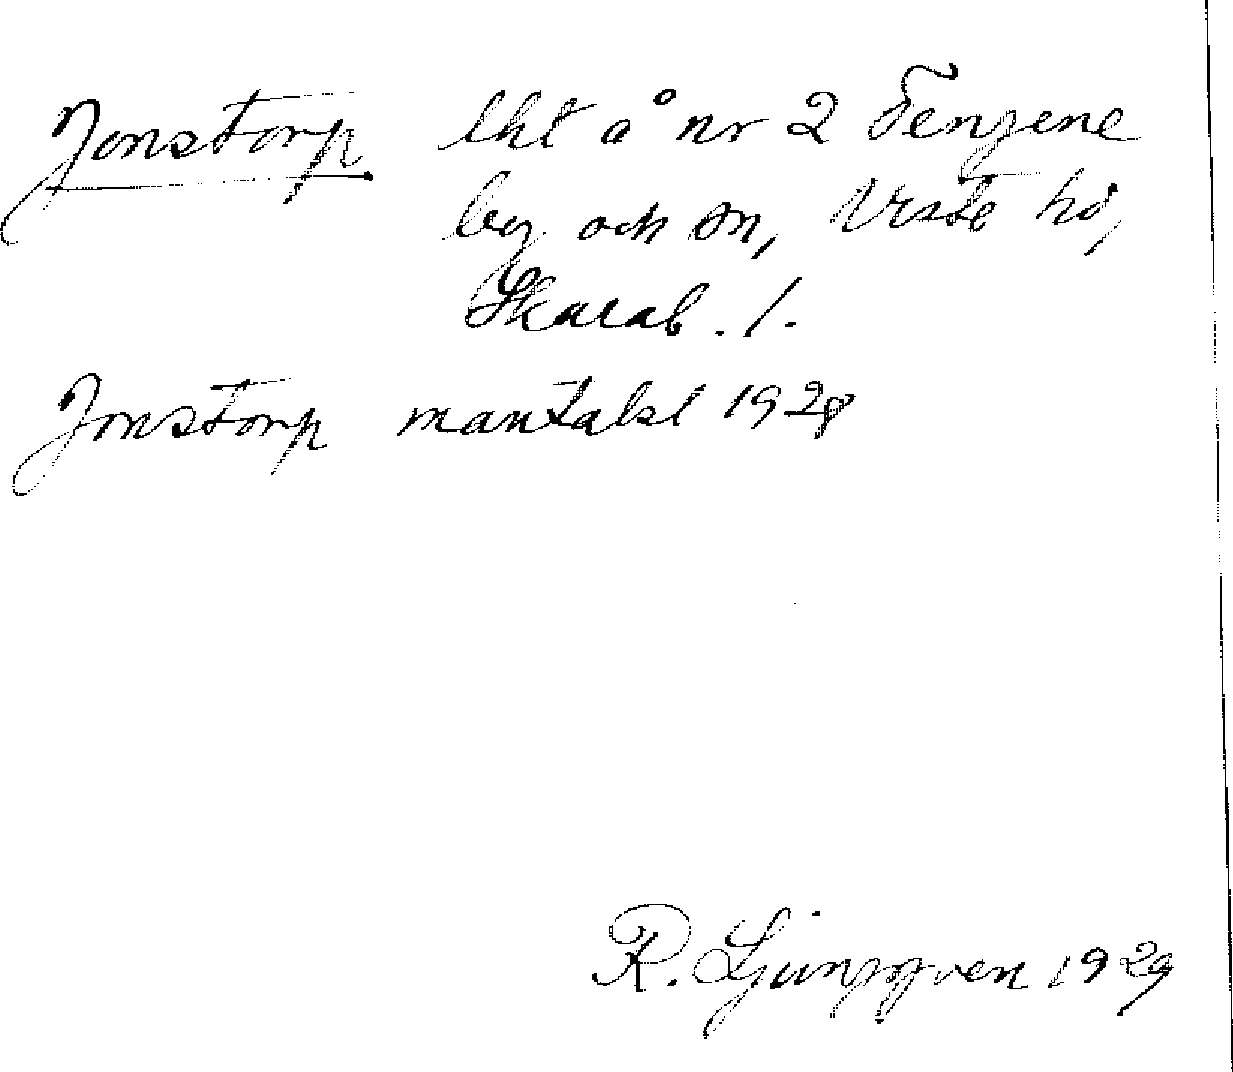 Jonstorp lht å nr 2 Tengene
by och sn, Viste hd,
Skarab. l.
Jonstorp mantalsl 1928
R. Ljunggren 1929